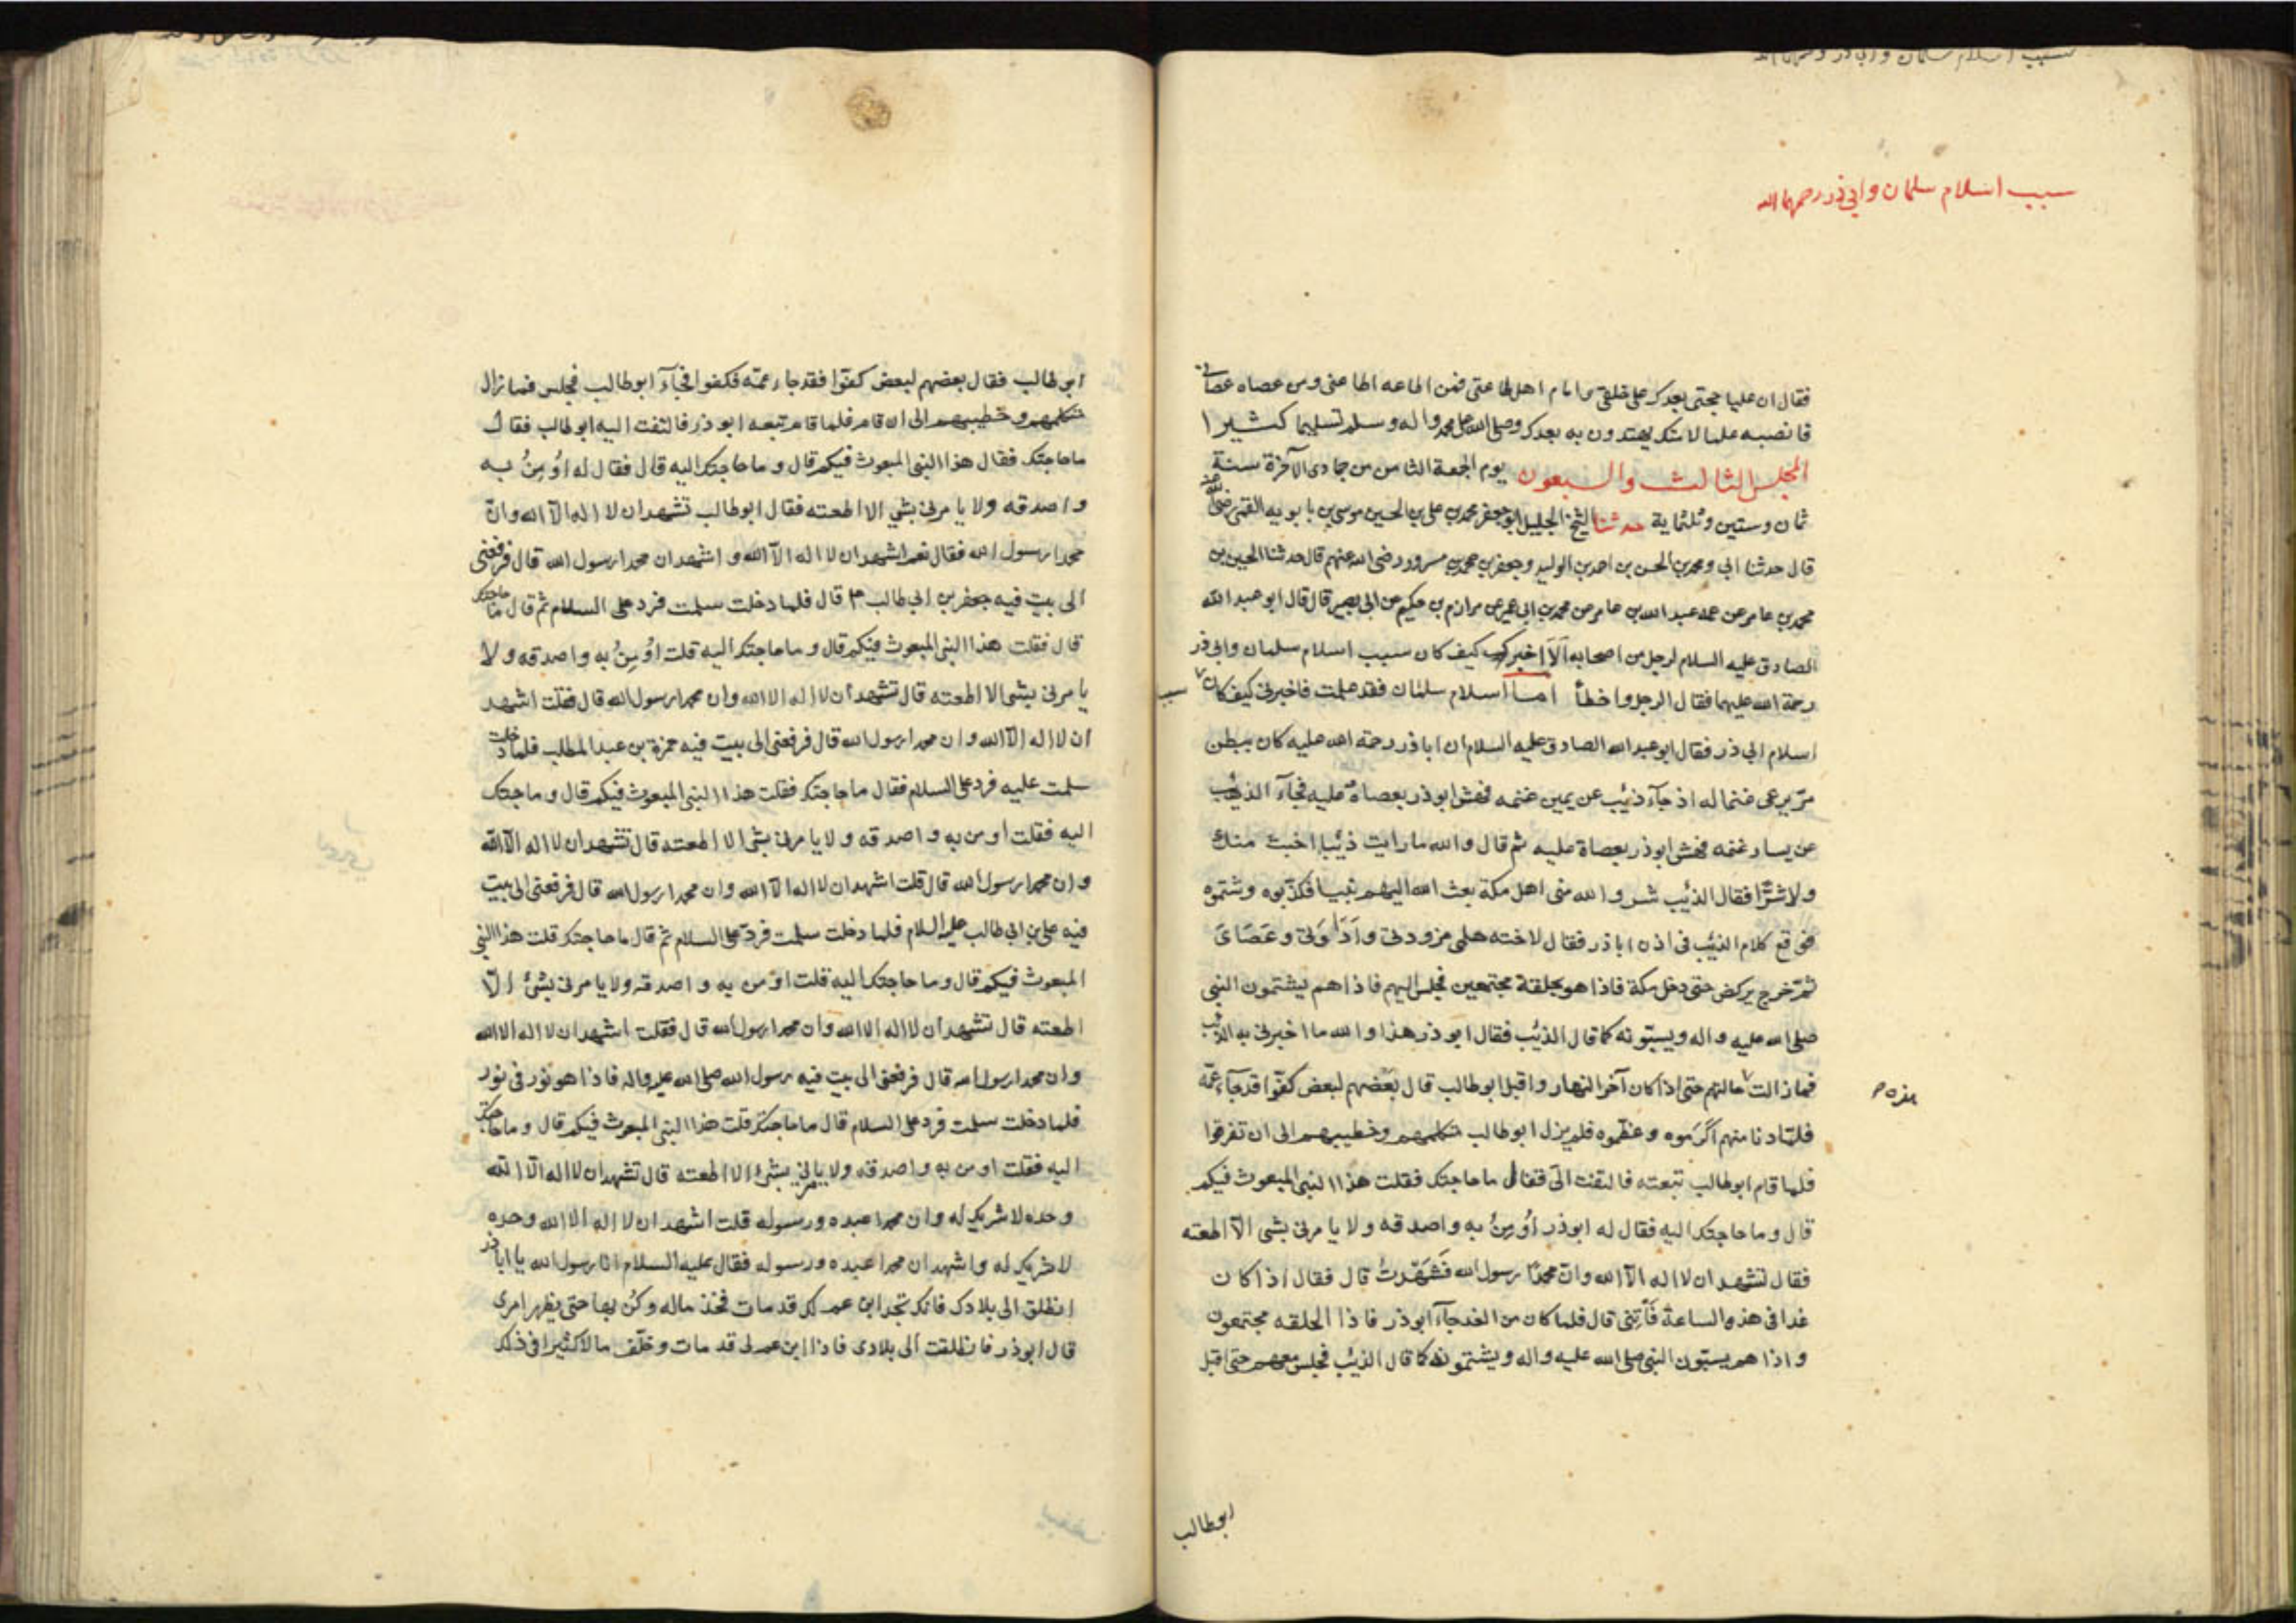 سبب اسلام سلمان وابي ذر رحمهما الله
سبب اسلام سلمان وابي ذر رحمهما الله
فقال ان عليا حجتي بعدك على خلقي وامام اهل طاعتي فمن اطاعه اطاعني ومن عصاه عصاني
فانصبه علما لامتك يهتدون به بعدك وصلى الله على محمد واله وسلم تسليما كثيرا
المجلس الثالث والسبعون يوم الجمعة الثامن من جمادى الآخرة سنة
ثمان وستين وثلثماية حدثنا الشيخ الجليل ابو جعفر محمد بن علي بن الحسين موسى بن بابويه القمي رضي الله عنه
قال حدثنا ابي ومحمد بن الحسن بن احمد بن الوليد وجعفر بن محمد بن مسرور رضي الله عنهم قال حدثنا الحسين بن
محمد بن عامر عن عمه عبد الله بن عامر عن محمد بن ابي عمير عن مرازم بن حكيم عن ابي بصير قال قال ابو عبد الله
الصادق عليه السلام لرجل من اصحابه اَلَا اخبرك كيف كان سبب اسلام سلمان وابي ذر
رحمة الله عليهما فقال الرجل واخطأ اما اسلام سلمان فقد علمت فاخبرني كيف كان سبب
اسلام ابي ذر فقال ابو عبد الله الصادق عليه السلام ان اباذر رحمة الله عليه كان ببطن
مرّ يرعى غنما له اذ جآء ذئيب عن يمين غنمه فهش ابوذر بعصاه عليه فجآء الذئيب
عن يسار غنمه فهش ابوذر بعصاة عليه ثم قال والله ما رايت ذئيبا اخبث منك
ولا شرّا فقال الذئيب شر والله منى اهل مكة بعث الله اليهم نبيا فكذبوه وشتموه
فوقع كلام الذئيب في اذن اباذر فقال لاخته هلمى مزودتى واَدَاوَتى وعَصَاىَ
ثمّ خرج يركض حتى دخل مكة فاذا هو بحلقة مجتمعين فجلس اليهم فاذا هم يشتمون النبى
صلى الله عليه واله ويسبّونه كما قال الذئيب فقال ابوذر هذا والله ما اخبرنى به الذئيب
فما زالت هذه حالتهم حتى اذا كان آخر النهار واقبل ابوطالب قال بعضهم لبعض كفّوا قد جآء عمّه
فلمّا دنا منهم اكرموه وعظّموه فلم يزل ابوطالب متكلمهم وخطيبهم الى ان تفرقوا
فلما قام ابوطالب تبعته فالتفت الىّ فقال ما حاجتك فقلت هذا النبى المبعوث فيكم
قال وما حاجتك اليه فقال له ابوذر اُومِنُ به واصدقه ولا يامرنى بشى الّا اطعته
فقال تشهد ان لا اله الّا الله وانّ محمدًا رسول الله فَشَهّدتُ قال فقال اذا كان
غدا فى هذه الساعة فَأتِنى قال فلما كان من الغد جآء ابوذر فاذا الحلقه مجتمعون
واذا هم يسبّون النبى صلى الله عليه واله ويشتمونه كما قال الذئيب فجلس معهم حتى اقبل
ابوطالب
ابوطالب فقال بعضهم لبعض كفوّا فقد جاء عمّه فكفوا فجآء ابوطالب فجلس فما زال
متكلمهم وخطيبهم الى ان قام فلما قام تبعه ابوذر فالتفت اليه ابوطالب فقال
ما حاجتك فقال هذا النبى المبعوث فيكم قال وما حاجتك اليه قال فقال له اُومِنُ به
واصدقه ولا يامرنى بشي الا اطعته فقال ابوطالب تشهد ان لا اله الّا الله وانّ
محمدا رسول الله فقال نعم اشهد ان لا اله الّا الله واشهد ان محمدا رسول الله قال فرفعنى
الى بيت فيه جعفر بن ابى طالب قال فلما دخلت سلمت فرد على السلام ثم قال ما حاجتك
قال فقلت هذا النبى المبعوث فيكم قال وما حاجتك اليه قلت اُومِنُ به واصدقه ولا
يامرنى بشى الا اطعته قال تشهد ان لا اله الا الله وان محمدا رسول الله قال فقلت اشهد
ان لا اله الّا الله وان محمدا رسول الله قال فرفعنى الى بيت فيه حمزة بن عبد المطلب فلما دخلت
سلمت عليه فرد على السلام فقال ما حاجتك فقلت هذا النبى المبعوث فيكم قال وما حاجتك
اليه فقلت اومن به واصدقه ولا يامرنى بشى الا اطعته قال تشهد ان لا اله الّا الله
وان محمدا رسول الله قال قلت اشهد ان لا اله الّا الله وان محمدا رسول الله قال فرفعنى الى بيت
فيه على بن ابى طالب عليه السلام فلما دخلت سلمت فردّ على السلام ثم قال ما حاجتك قلت هذا النبى
المبعوث فيكم قال وما حاجتك اليه قلت اومن به واصدقه ولا يامرنى بشئ الّا
اطعته قال تشهد ان لا اله الا الله وان محمدا رسول الله قال فقلت اشهد ان لا اله الا الله
وان محمدا رسول الله قال فرفعنى الى بيت فيه رسول الله صلى الله عليه واله فاذا هو نور فى نور
فلما دخلت سلمت فرد على السلام قال ما حاجتك قلت هذا النبى المبعوث فيكم قال وما حاجتك
اليه فقلت اومن به واصدقه ولا يامرنى بشئ الا اطعته قال تشهد ان لا اله الّا الله
وحده لا شريك له وان محمدا عبده ورسوله قلت اشهد ان لا اله الا الله وحده
لا شريك له واشهد ان محمدا عبده ورسوله فقال عليه السلام انا رسول الله يا اباذر
انطلق الى بلادك فانك تجد ابن عم لك قد مات فخذ ماله وكُن بها حتى يظهر امرى
قال ابوذر فانطلقت الى بلادى فاذا ابن عم لى قد مات وخلّف مالا كثيرا فى ذلك